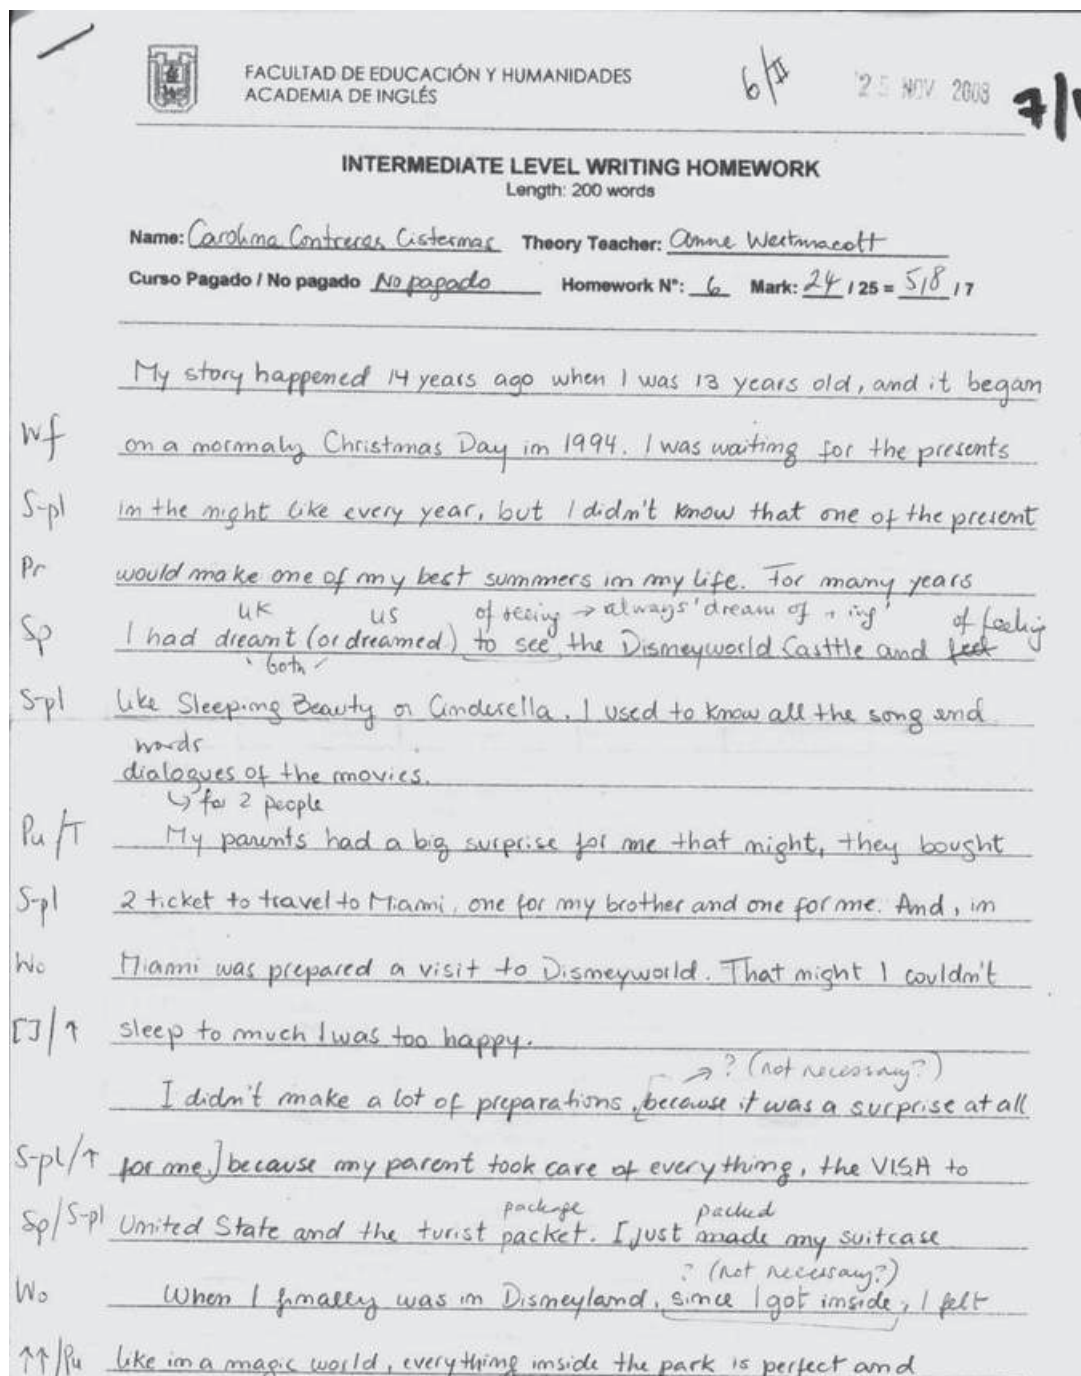 FACULTAD DE EDUCACIÓN Y HUMANIDADES
ACADEMIA DE INGLÉS
6/II
25 NOV 2008
7/
INTERMEDIATE LEVEL WRITING HOMEWORK
Length: 200 words
Name: Carolina Contreras Cisternas Theory Teacher: Anne Westmacott
Curso Pagado / No pagado No pagado Homework N°: 6 Mark: 24 / 25 = 5,8 / 7
My story happened 14 years ago when I was 13 years old, and it began
Wf on a normaly Christmas Day in 1994. I was waiting for the presents
S-pl in the night like every year, but I didn't know that one of the present
Pr would make one of my best summers in my life. For many years
UK US of seeing → always 'dream of + ing' of feeling
Sp I had dreamt (or dreamed) to see the Disneyworld Casttle and feel
both
S-pl like Sleeping Beauty or Cinderella. I used to know all the song and
words
dialogues of the movies.
↳ for 2 people
Pu/T My parents had a big surprise for me that night, they bought
S-pl 2 ticket to travel to Miami, one for my brother and one for me. And, in
Wo Miami was prepared a visit to Disneyworld. That night I couldn't
[]/↑ sleep to much I was too happy.
→ ? (not necessary?)
I didn't make a lot of preparations, [because it was a surprise at all
S-pl/↑ for me,] because my parent took care of everything, the VISA to
package packed
Sp/S-pl United State and the turist packet. I just made my suitcase
? (not necessary?)
Wo When I finally was in Disneyland, since I got inside, I felt
↑↑/Pu like in a magic world, everything inside the park is perfect and